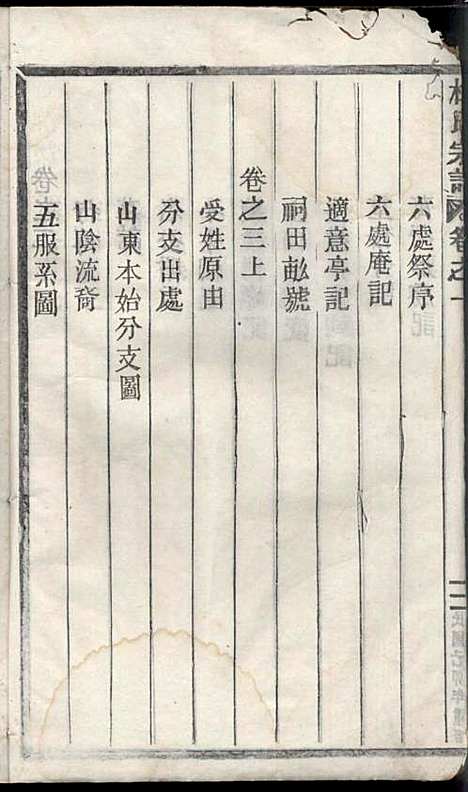 六處祭序
六處庵記
適意亭記
祠田畝號
卷之三上
受姓原由
分支出處
山東本始分支圖
山陰流裔
五服系圖